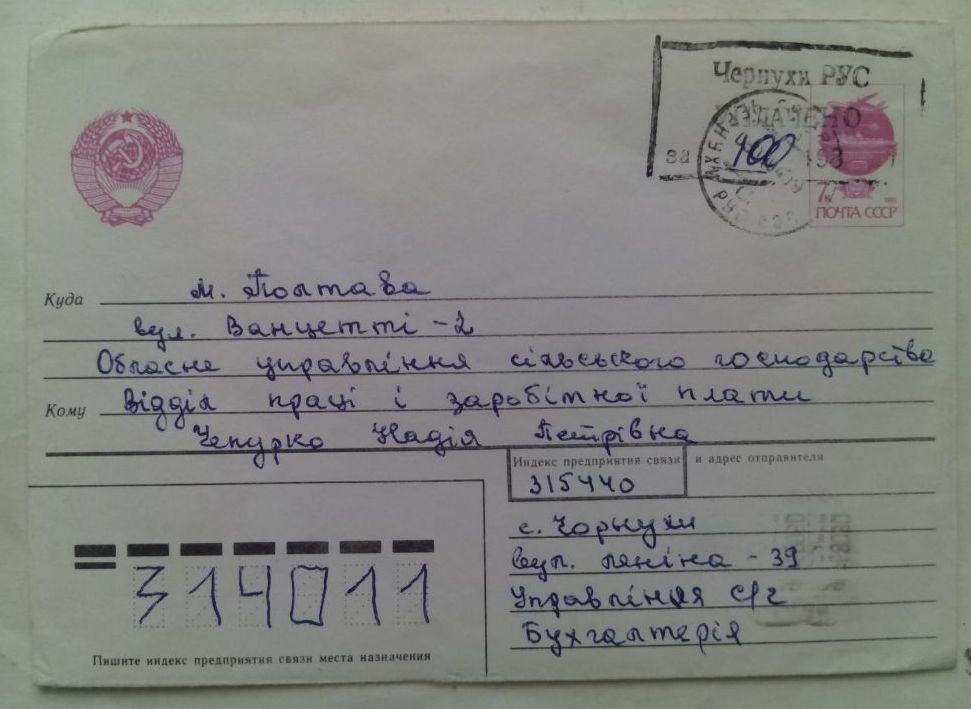 Чернухи РУС
за 100
7к
ПОЧТА СССР
Куда м. Полтава
вул. Ванцетті - 2
Обласне управління сільського господарства
Кому Відділ праці і заробітної плати
Чепурко Надія Петрівна
Индекс предприятия связи и адрес отправителя
315440
с. Чорнухи
вул. Леніна - 39
Управління с/г
Бухгалтерія
314011
Пишите индекс предприятия связи места назначения